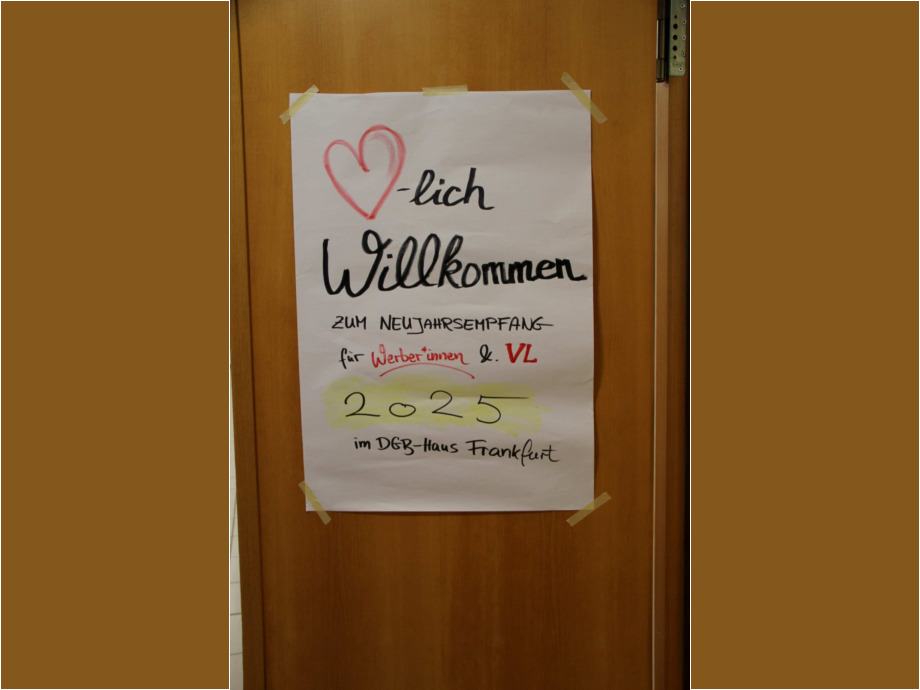 -lich
Willkommen
ZUM NEUJAHRSEMPFANG
für Werber*innen &. VL
2025
im DGB-Haus Frankfurt